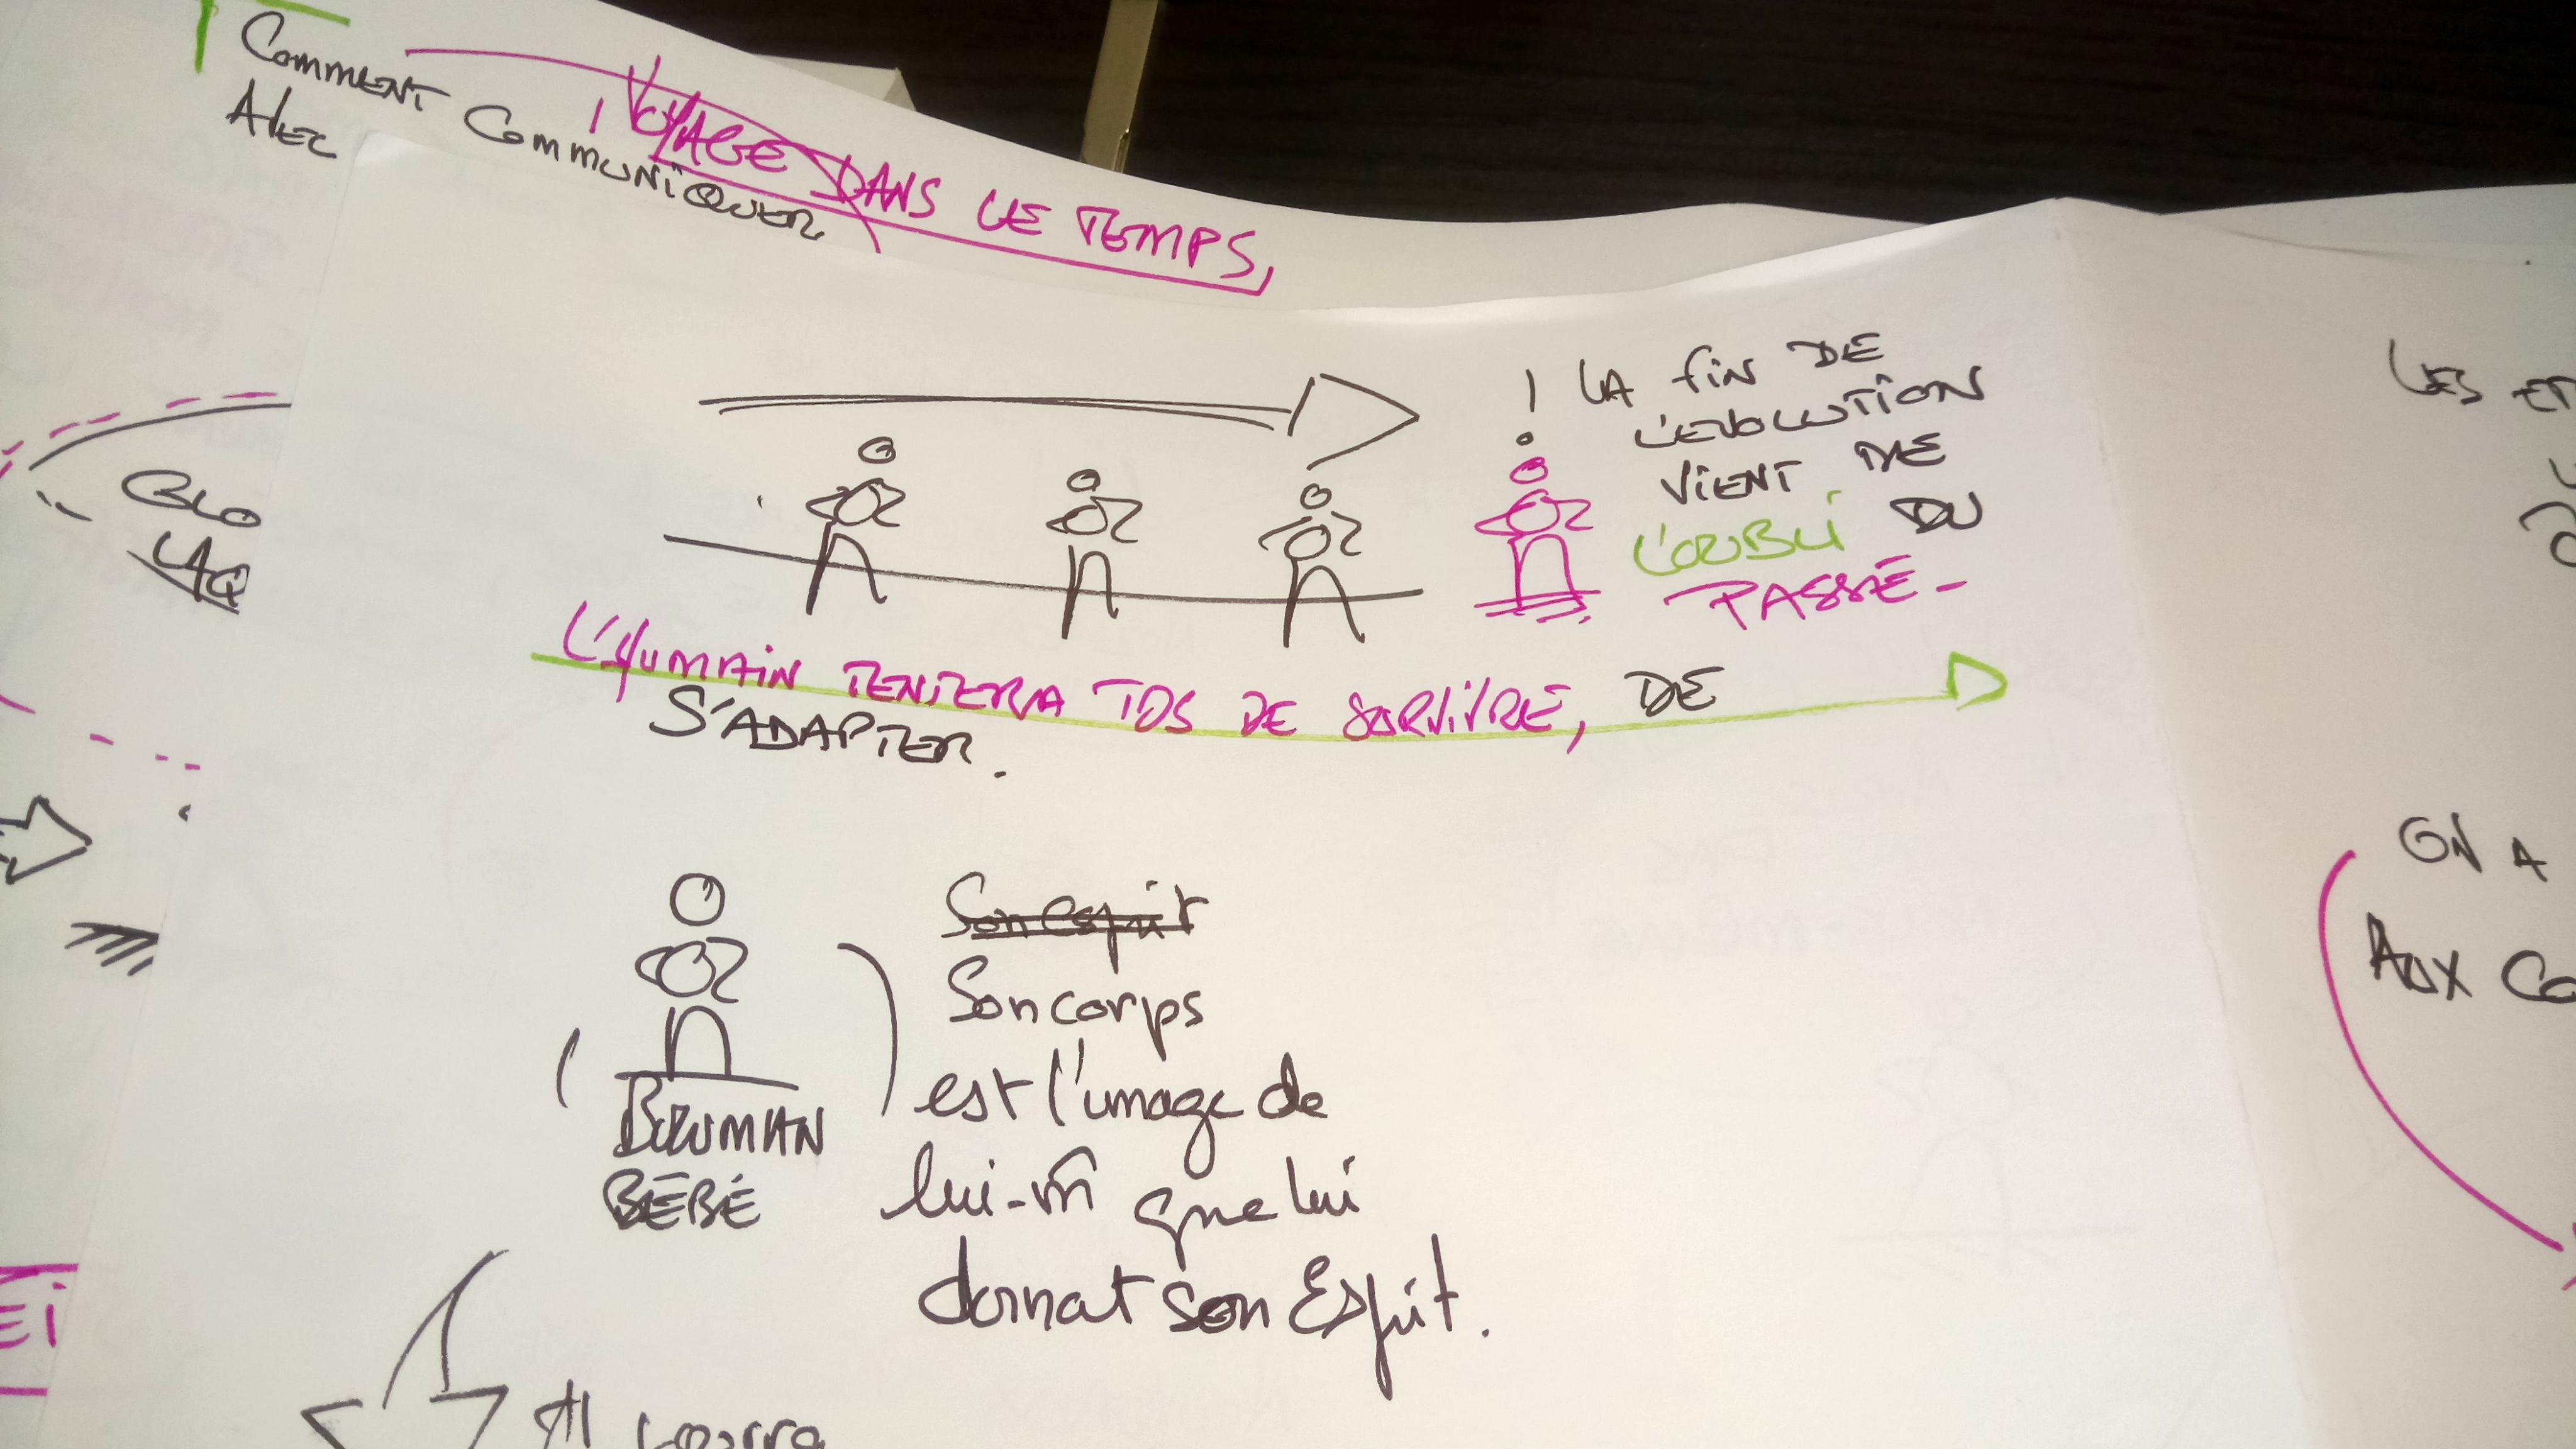 Comment Communiquer
Avec
VOYAGE DANS LE TEMPS,
! LA fiN DE
L'EVOLUTION
ViENT DE
L'OUBLi DU
PASSÉ-
L'HUMAiN TENTERA TJS DE SURViVRE, DE
S'ADAPTER.
GLO
LAQ
Son esprit
Son corps
est l'image de
lui-m̂ que lui
donnat son Esprit.
BOWMAN
BÉBÉ
LES ET
ON A
AUX CO
Ei